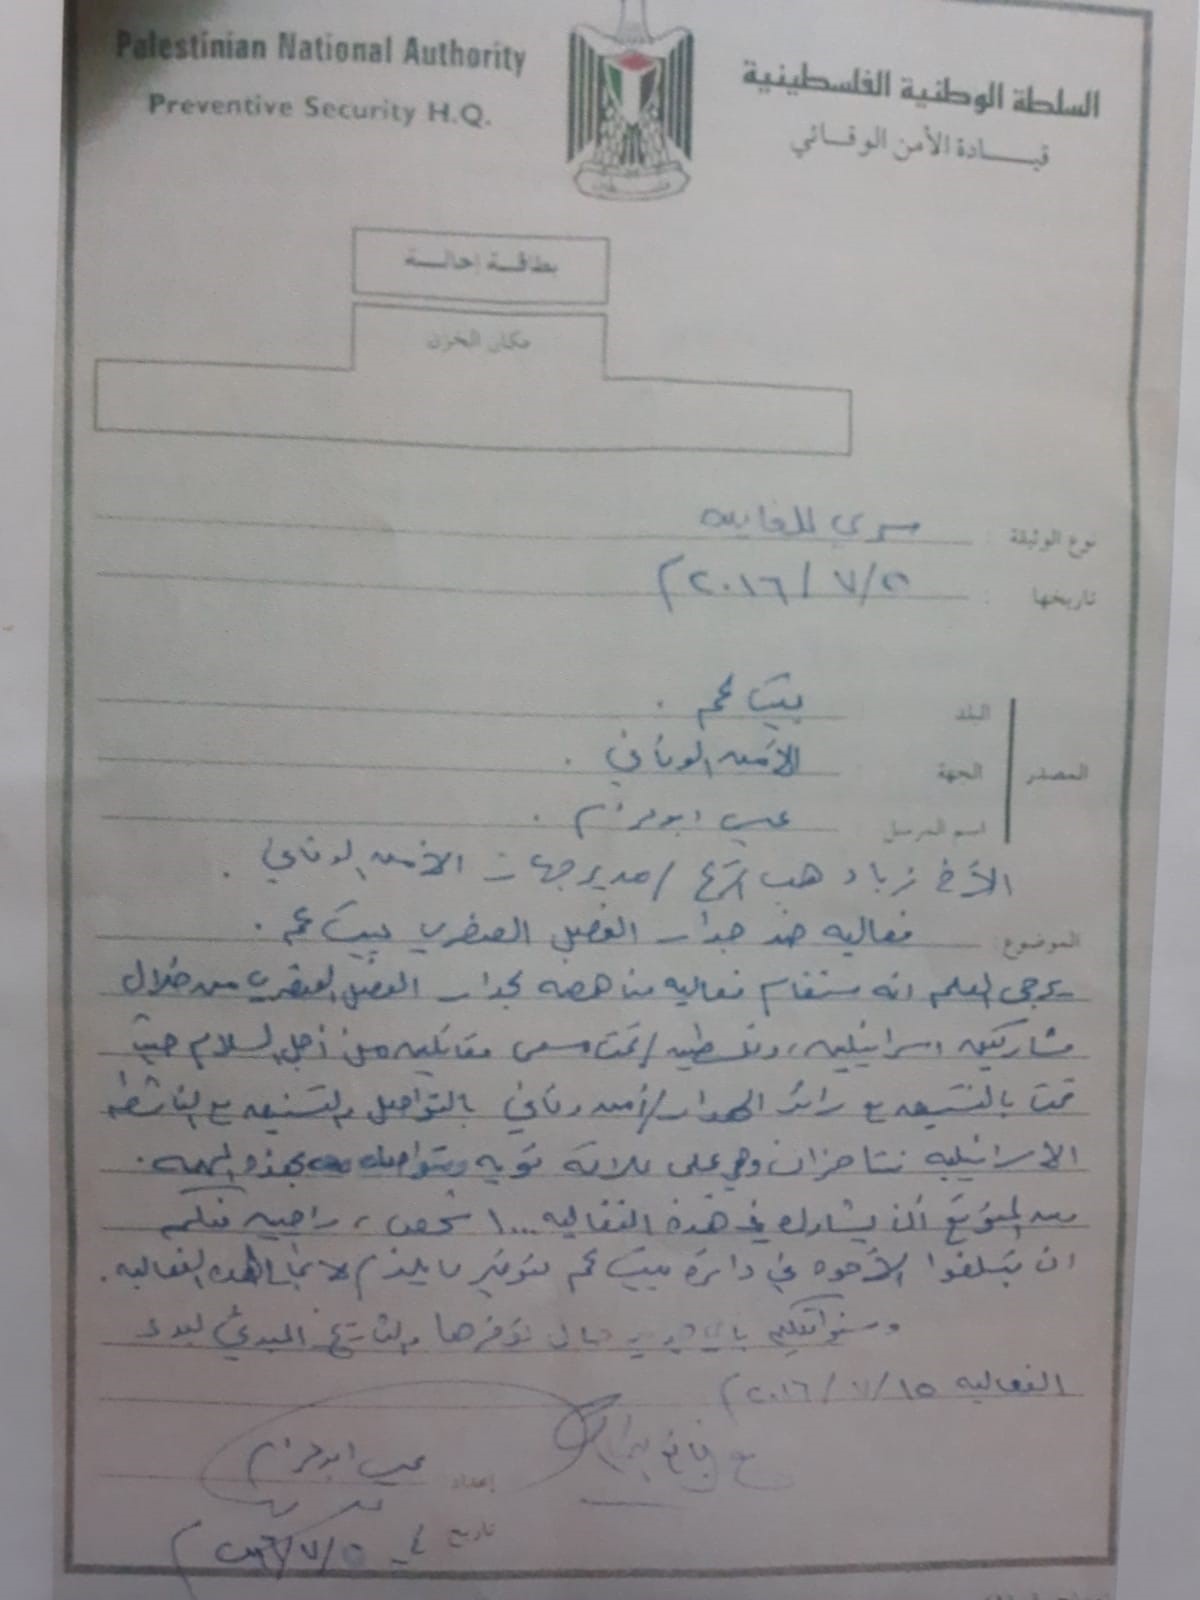 Palestinian National Authority
Preventive Security H.Q.
السلطة الوطنية الفلسطينية
قيادة الأمن الوقائي
بطاقة إحالة
مكان الخزن
نوع الوثيقة : سري للغايه
تاريخها : ٢٠١٦/٧/٥م
المصدر
البلد
الجهة الأمن الوقائي .
اسم المرسل
الأخ زياد هب الريح / مدير الأمن الوقائي .
الموضوع: فعاليه ضد جدار الفصل العنصري
يرجى العلم انه ستقام فعاليه مناهضه لجدار الفصل العنصري من خلال
مشاركين اسرائيليين وفلسطينيين / تحت مسمى مقاتلين من أجل السلام حيث
قمت بالتنسيق مع رائد / أمن وقائي بالتواصل والتنسيق مع الناشطه
الاسرائيليه وهي على علاقة قويه
من المتوقع أن يشارك في هذه الفعاليه ١٠٠٠ شخص ، راجين منكم
ان تبلغوا الأخوه في دائرة بتوفير ما يلزم لانجاح هذه الفعاليه .
وسنوافيكم بأي جديد حال توفرها والتاريخ المبدئي لبدء
الفعاليه ٢٠١٦/٧/١٥م
مع فائق احترامي
إعداد
تاريخ ٢٠١٦/٧/٥م